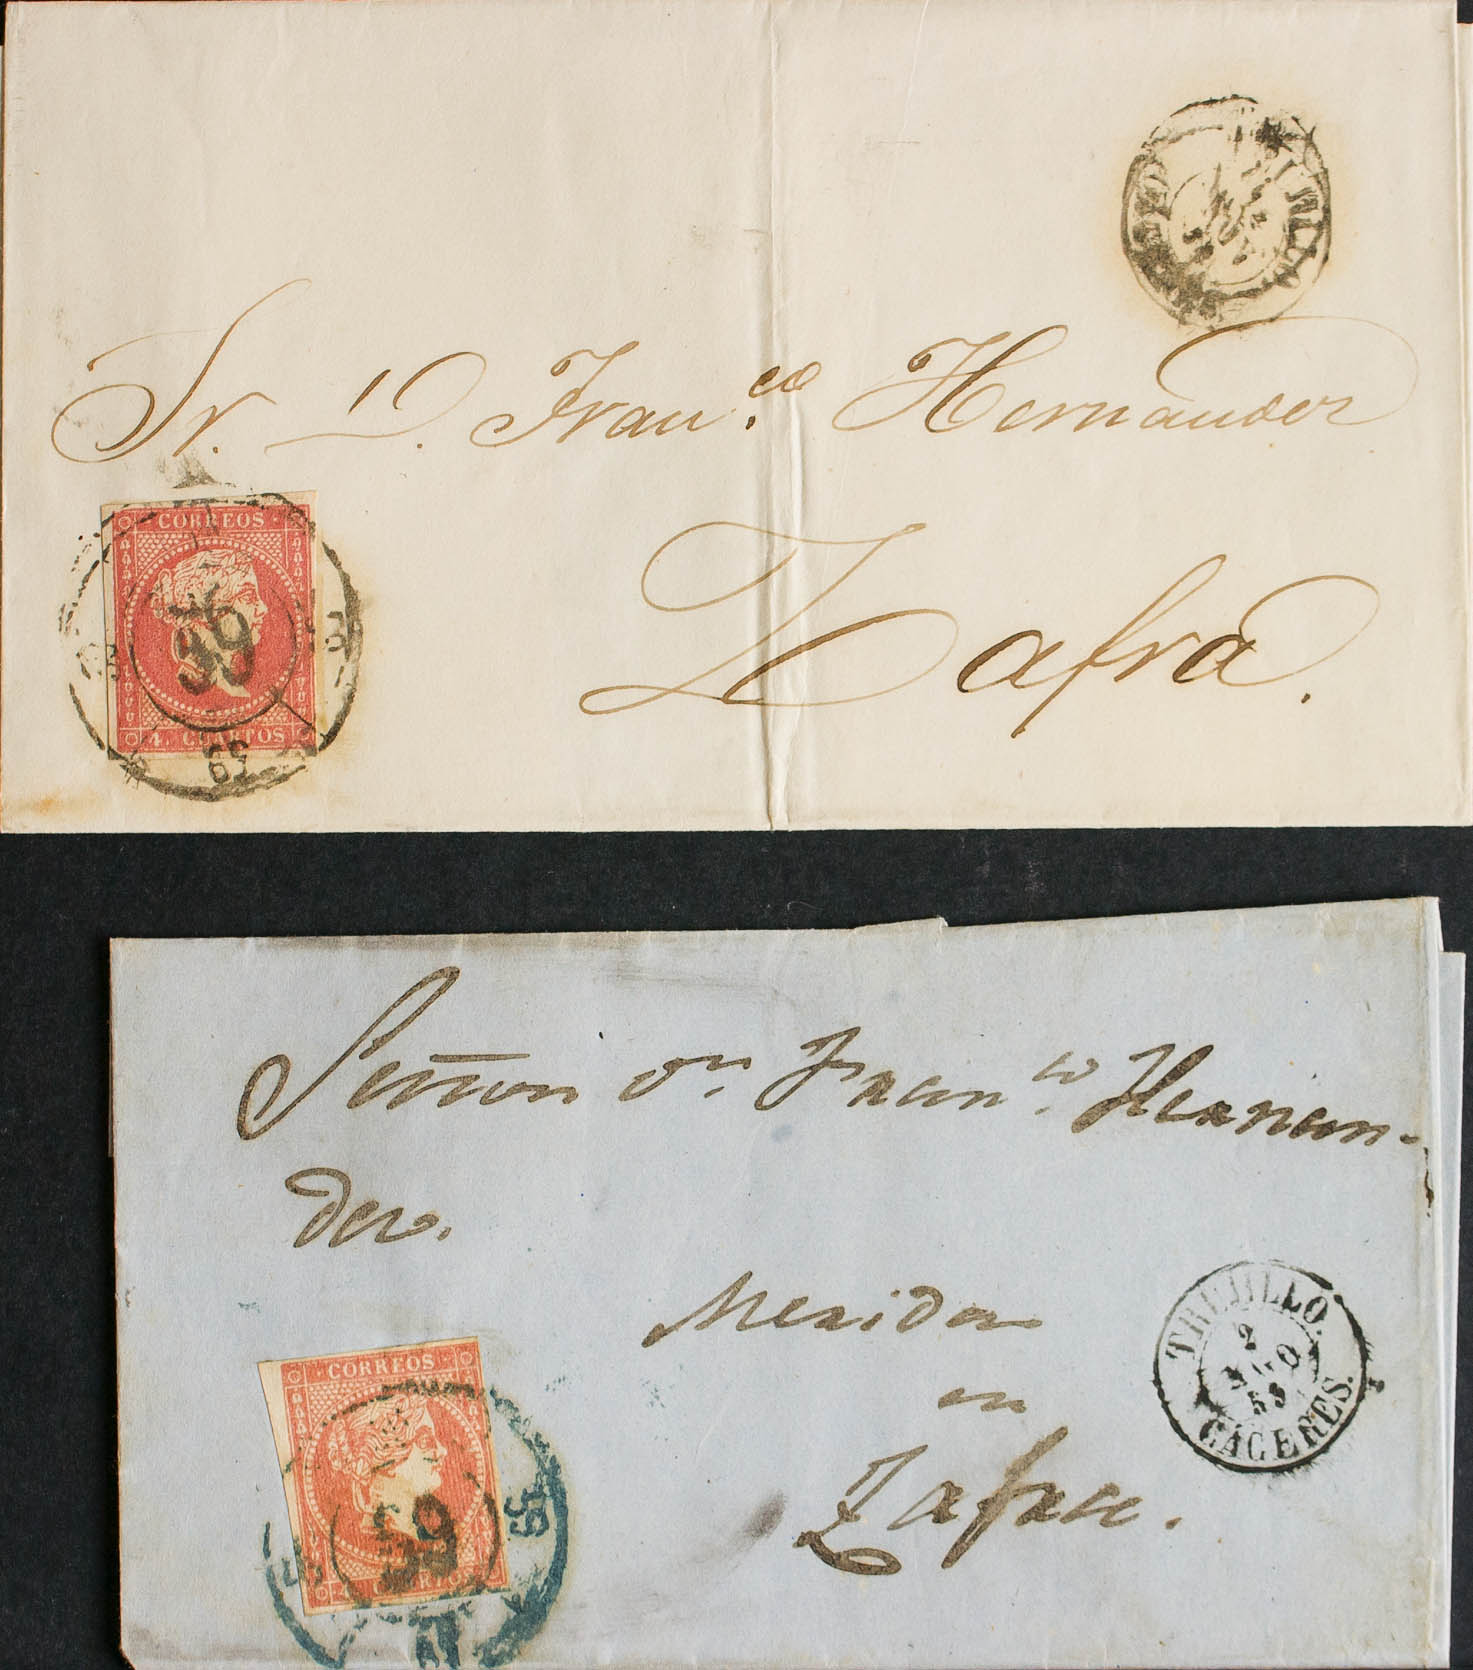 Sr. D. Fran.co Hernandez
Zafra.
CORREOS
39
4. CUARTOS
59
Señor Dn. Franco. Hernan-
dez.
Merida
en
Zafra.
TRUJILLO.
2
CACERES.
CORREOS
39